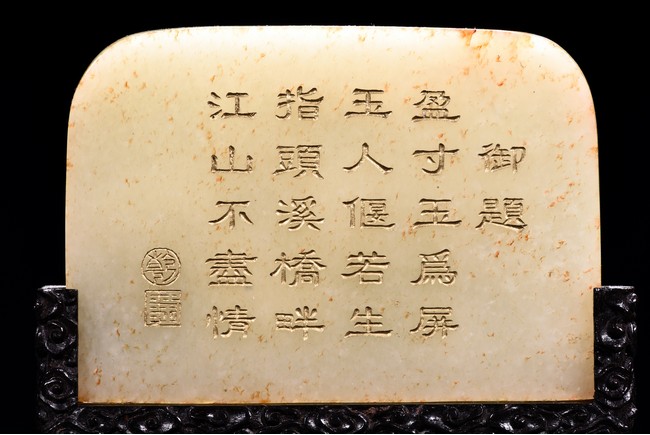 御題
盈寸玉為屏
玉人偃若生
指頭溪橋畔
江山不盡情